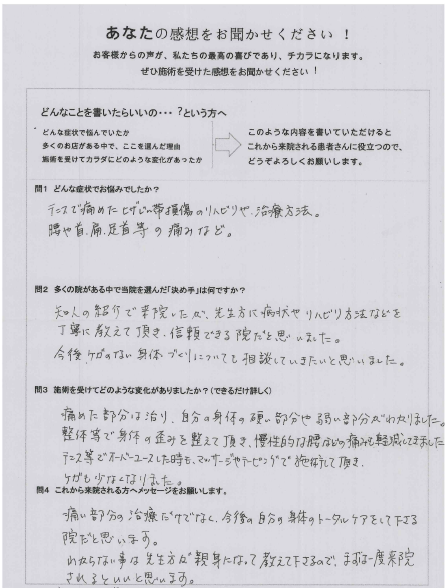 あなたの感想をお聞かせください！
お客様からの声が、私たちの最高の喜びであり、チカラになります。
ぜひ施術を受けた感想をお聞かせください！
どんなことを書いたらいいの・・・？という方へ
どんな症状で悩んでいたか
多くのお店がある中で、ここを選んだ理由
施術を受けてカラダにどのような変化があったか
このような内容を書いていただけると
これから来院される患者さんに役立つので、
どうぞよろしくお願いします。
問1 どんな症状でお悩みでしたか？
テニスで痛めたヒザじん帯損傷のリハビリや、治療方法。
腰や首、肩、足首等の痛みなど。
問2 多くの院がある中で当院を選んだ「決め手」は何ですか？
知人の紹介で来院したが、先生方に病状やリハビリ方法などを
丁寧に教えて頂き、信頼できる院だと思いました。
今後ケガのない身体づくりについても相談していきたいと思いました。
問3 施術を受けてどのような変化がありましたか？（できるだけ詳しく）
痛めた部分は治り、自分の身体の硬い部分や弱い部分がわかりました。
整体等で身体の歪みを整えて頂き、慢性的な腰などの痛みも軽減してきました
テニス等でオーバーユースした時も、マッサージやテーピングで施術して頂き、
ケガも少なくなりました。
問4 これから来院される方へメッセージをお願いします。
痛い部分の治療だけでなく、今後の自分の身体のトータルケアをして下さる
院だと思います。
わからない事は先生方が親身になって教えて下さるので、まずは一度来院
されるといいと思います。